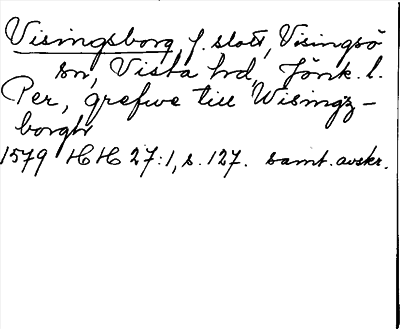 Visingsborg, f. slott, Visingsö
sn, Vista hrd, Jönk. l.
Per, grefwe till Wisingz-
borgh
1579 HH 27:1, s. 127. samt. avskr.